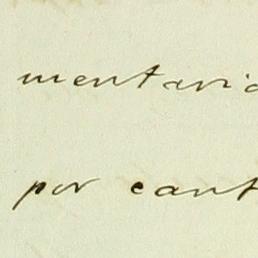 mentaria
por cant